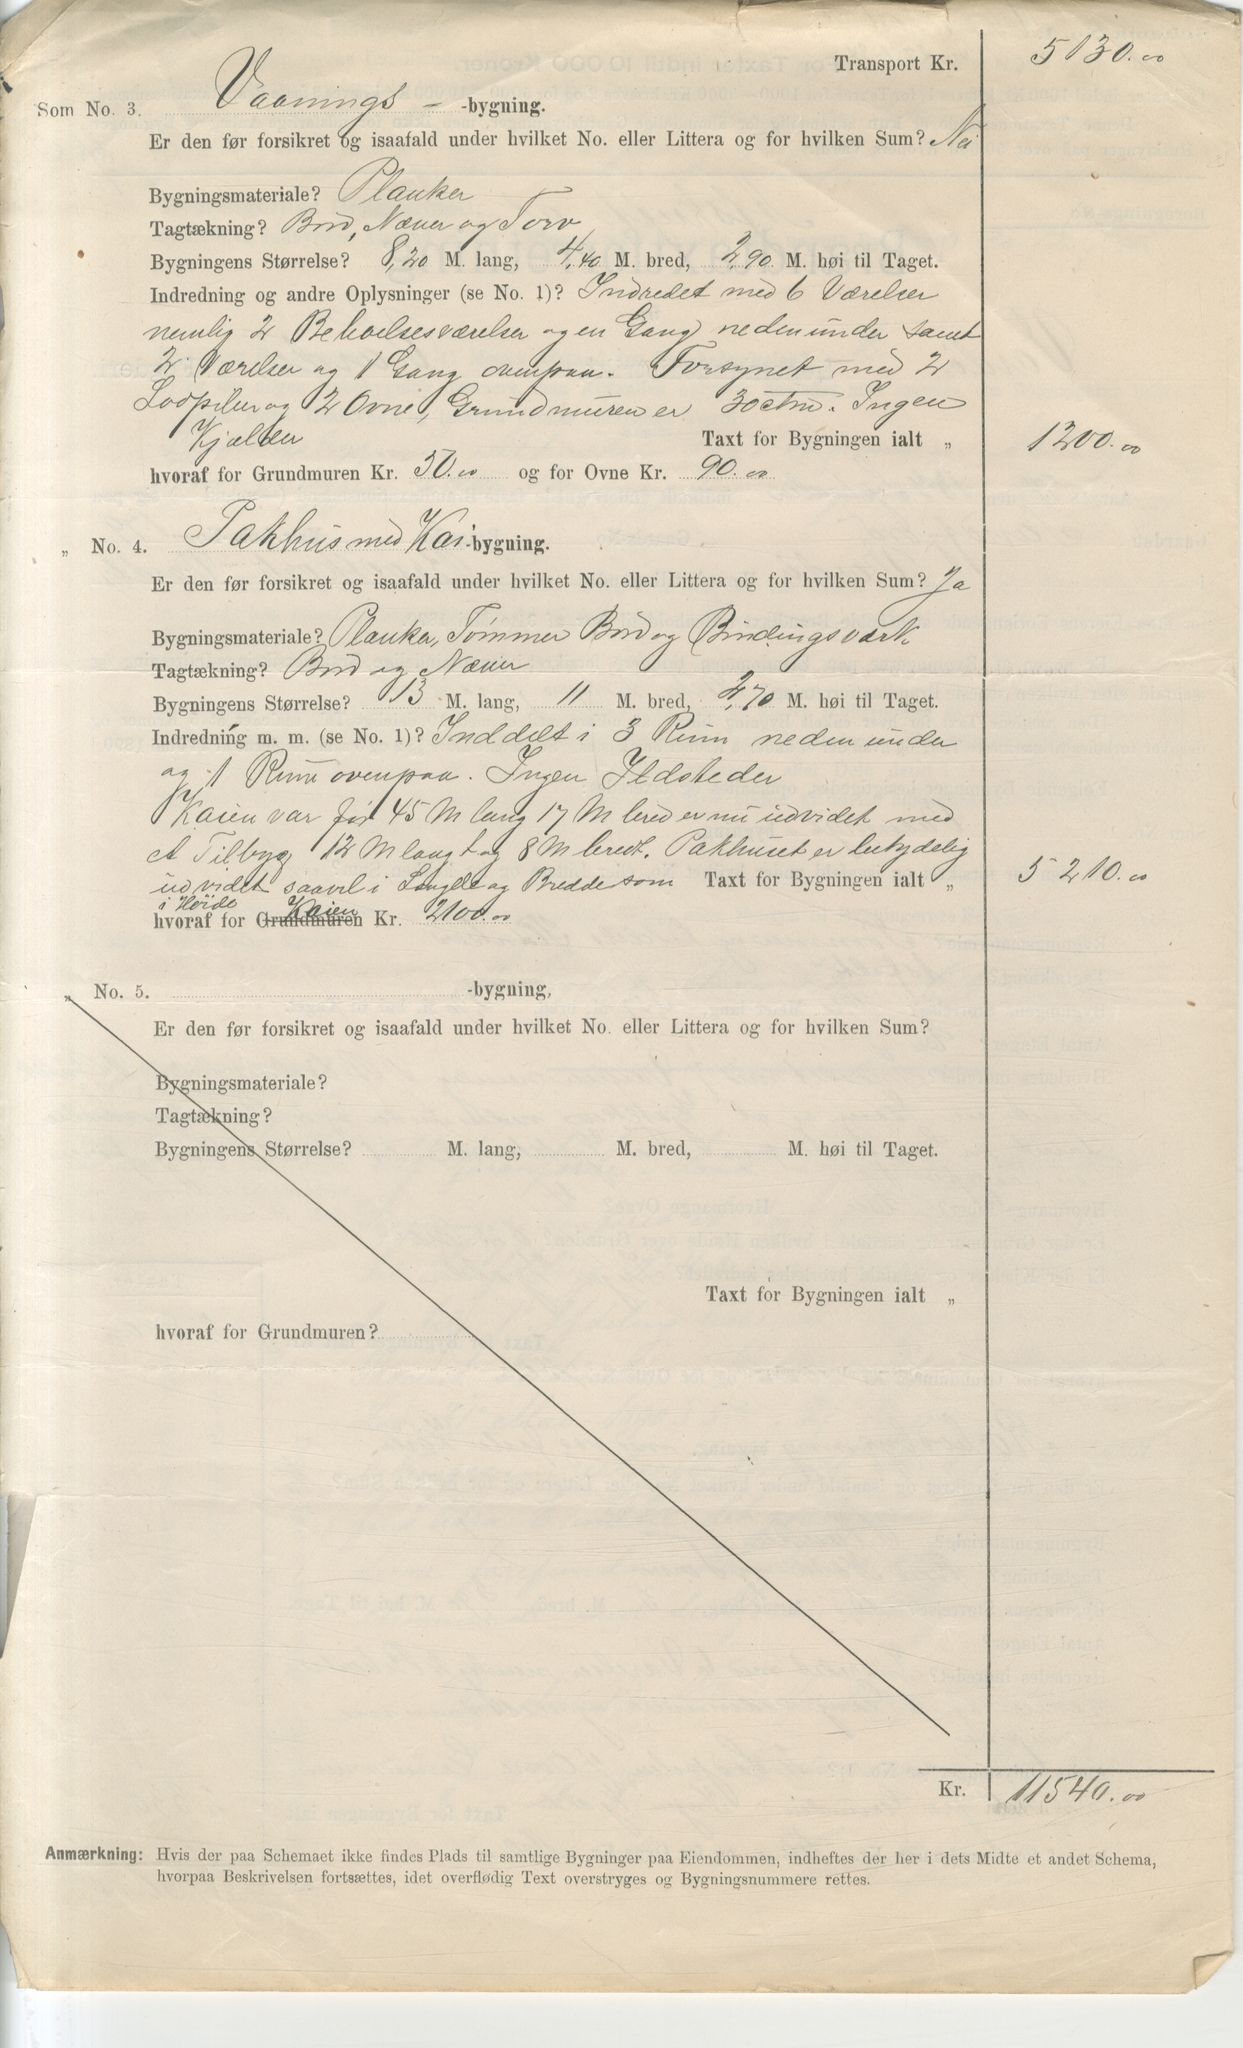 Transport Kr. 5130.00
Som No. 3. Vaanings - -bygning.
Er den før forsikret og isaafald under hvilket No. eller Littera og for hvilken Sum? Nei
Bygningsmateriale? Planker
Tagtækning? Bord, Næver og Torv
Bygningens Størrelse? 8,20 M. lang, 4,40 M. bred, 2,90 M. høi til Taget.
Indredning og andre Oplysninger (se No. 1)? Indredet med 6 Værelser
nemlig 2 Beboelsesværelser og en Gang nedenunder samt
2 Værelser og 1 Gang ovenpaa. Forsynet med 2
og 2 Ovne, Grundmuren er 30 ctm. Ingen
Kjælder Taxt for Bygningen ialt „ 1200.00
hvoraf for Grundmuren Kr. 50.00 og for Ovne Kr. 90.00
„ No. 4. Pakhus med Kai -bygning.
Er den før forsikret og isaafald under hvilket No. eller Littera og for hvilken Sum? Ja
Bygningsmateriale? Planker, Tømmer Bord og Bindingsværk
Tagtækning? Bord og Næver
Bygningens Størrelse? 13 M. lang, 11 M. bred, 2,70 M. høi til Taget.
Indredning m. m. (se No. 1)? Inddelt i 3 Rum nedenunder
og 1 Rum ovenpaa. Ingen Ildsteder
Kaien var før 45 M lang 17 M bred er nu udvidet med
et Tilbyg 12 M langt og 8 M bredt. Pakhuset er betydelig
udvidet saavel i Længde og Bredde som Taxt for Bygningen ialt „ 5210.00
i Høide
hvoraf for Grundmuren Kaien Kr. 2100.00
„ No. 5. -bygning,
Er den før forsikret og isaafald under hvilket No. eller Littera og for hvilken Sum?
Bygningsmateriale?
Tagtækning?
Bygningens Størrelse? M. lang, M. bred, M. høi til Taget.
Taxt for Bygningen ialt „
hvoraf for Grundmuren?
Kr. 11540.00
Anmærkning: Hvis der paa Schemaet ikke findes Plads til samtlige Bygninger paa Eiendommen, indheftes der her i dets Midte et andet Schema,
hvorpaa Beskrivelsen fortsættes, idet overflødig Text overstryges og Bygningsnummere rettes.